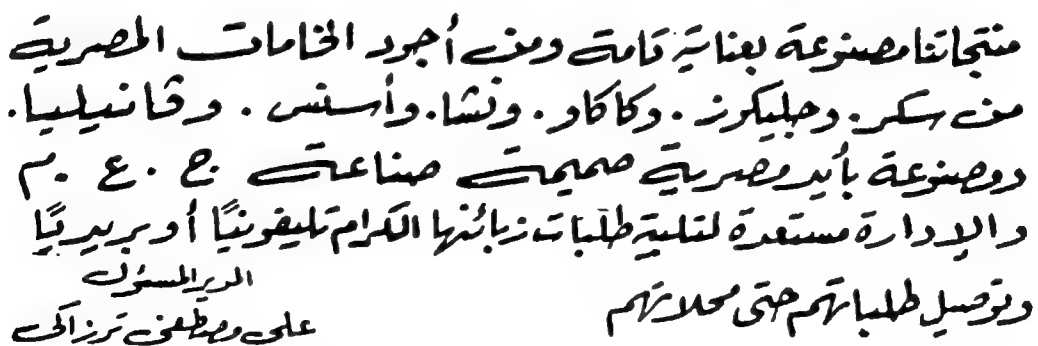 منتجاتنا مصنوعة بعناية تامة ومن أجود الخامات المصرية
من سكر. وجليكوز. وكاكاو. ونشا. وأسنس. وڤانيليا.
ومصنوعة بأيد مصرية صميمة صناعة ج. ع. م
والإدارة مستعدة لتلبية طلبات زبائنها الكرام تليفونيًا أو بريديًا
وتوصيل طلباتهم حتى محلاتهم
المدير المسئول
على مصطفى ترزاكى